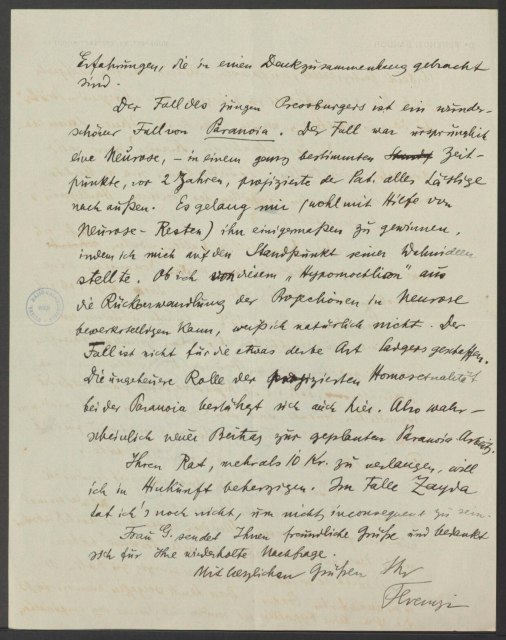 Erfahrungen, die in einen Denkzusammenhang gebracht
sind.
Der Fall des jungen Pressburgers ist ein wunder-
schöner Fall von Paranoia. Der Fall war ursprünglich
eine Neurose, – in einem ganz bestimmten Zeit-
punkte, vor 2 Jahren, projizierte der Pat. alles Lästige
nach außen. Es gelang mir (wohl mit Hilfe von
Neurose-Resten) ihn einigermaßen zu gewinnen,
indem ich mich auf den Standpunkt seiner Wahnideen
stellte. Ob ich von diesem „Hypomochlion" aus
die Rückverwandlung der Projektionen in Neurose
bewerkstelligen kann, weiß ich natürlich nicht. Der
Fall ist nicht für die etwas derbe Art geschaffen.
Die ungeheure Rolle der projizierten Homosexualität
bei der Paranoia bestätigt sich auch hier. Also wahr-
scheinlich neuer Beitrag zur geplanten Paranoia-Arbeit.
Ihren Rat, mehr als 10 Kr. zu verlangen, will
ich in Hinkunft beherzigen. Im Falle Zayda
tat ich's noch nicht, um nicht inconsequent zu sein.
Frau G. sendet Ihnen freundliche Grüße und bedankt
sich für Ihre wiederholte Nachfrage.
Mit herzlichen Grüßen Ihr
Ferenczi